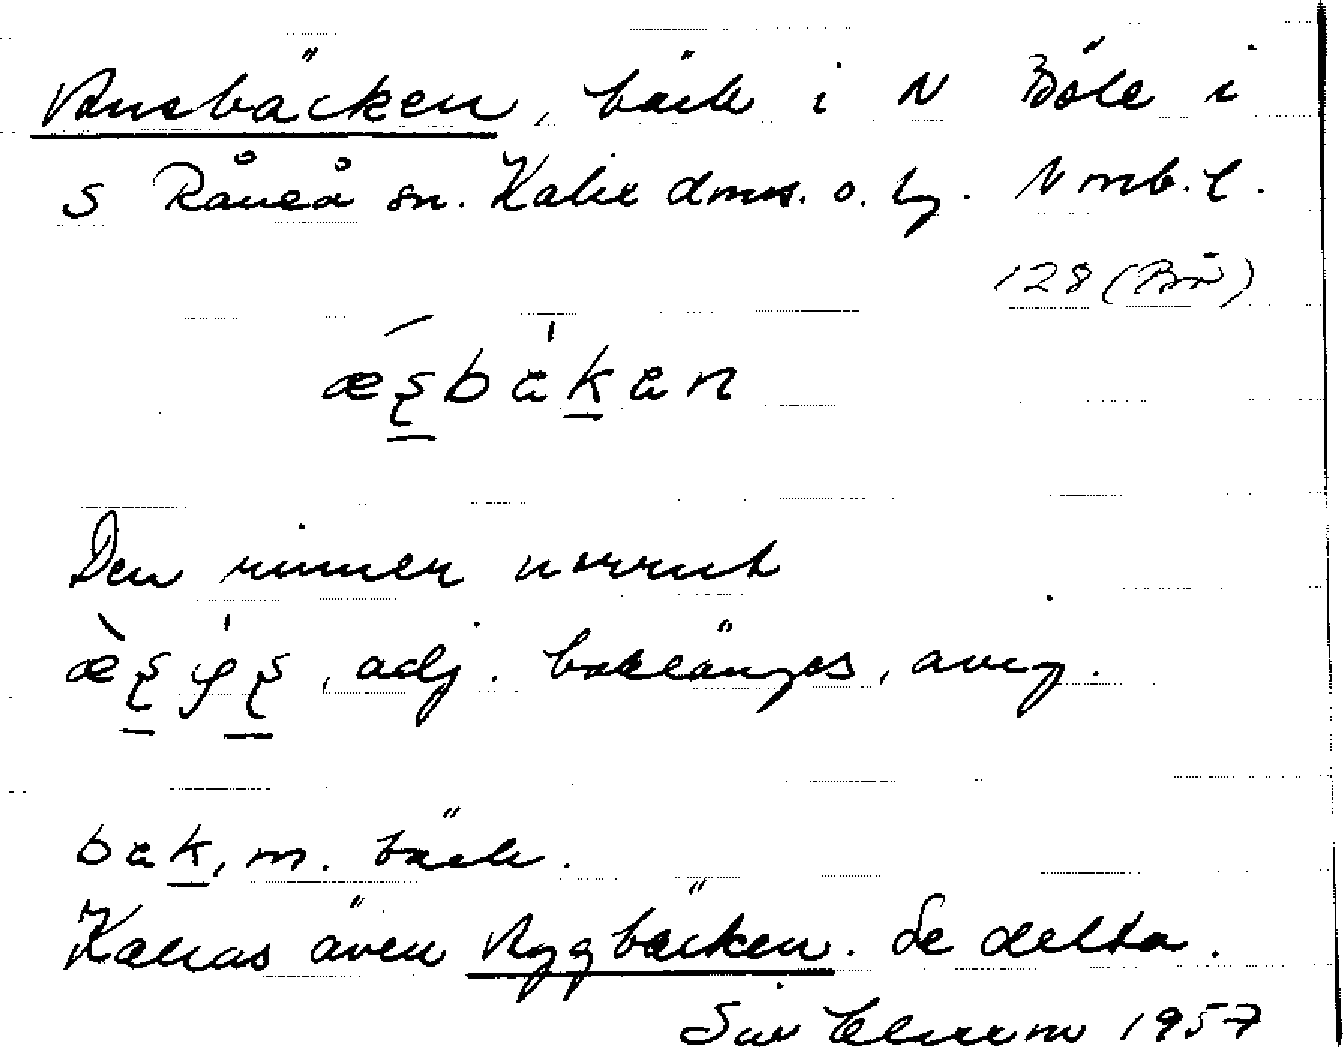 Ansbäcken, bäck i N Böle i
S Råneå sn. Kalix dms. o. tg. Nmb. l.
128 (Bn)
æʂbäkän
Den rinner norrut
adj. baklänges, avig.
bäk, m. bäck.
Kallas även Ryggbäcken. Se detta.
Siv 1957